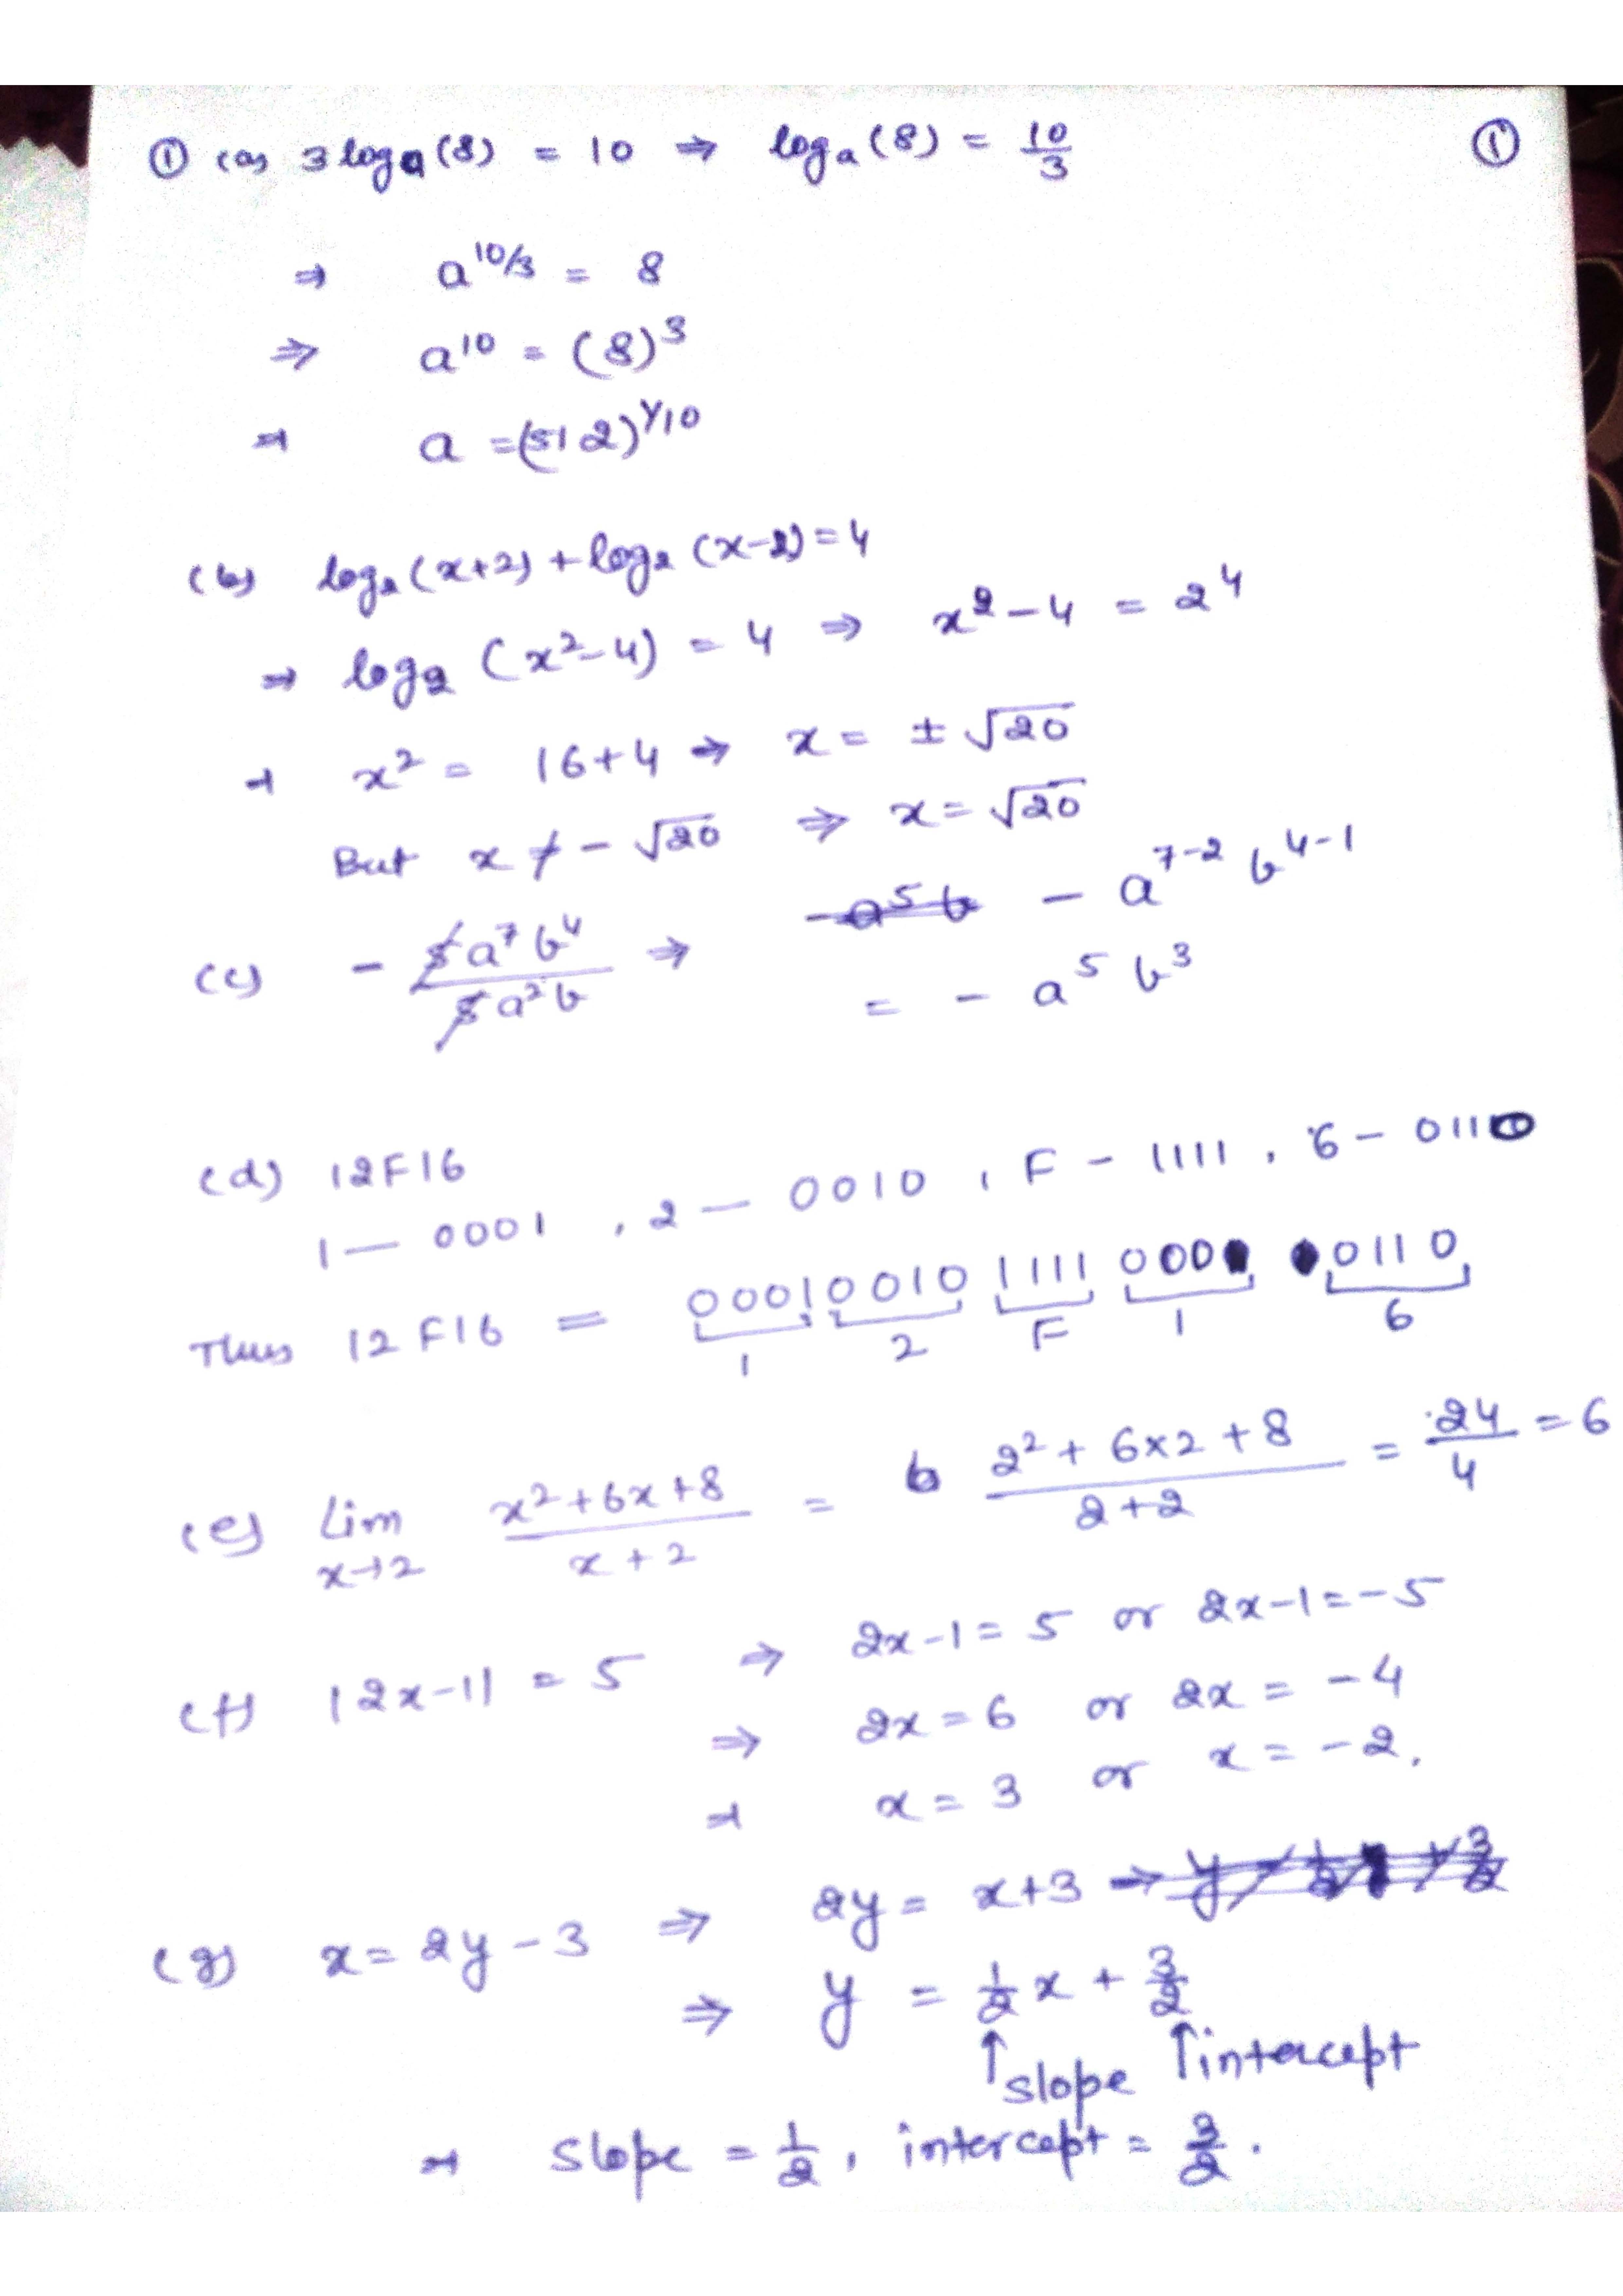 ① (a) 3 logₐ(8) = 10 ⇒ logₐ(8) = 10/3 ①
⇒ a^(10/3) = 8
⇒ a¹⁰ = (8)³
⇒ a = (512)^(1/10)
(b) log₂(x+2) + log₂(x-2) = 4
⇒ log₂(x²-4) = 4 ⇒ x²-4 = 2⁴
⇒ x² = 16+4 ⇒ x = ± √20
But x ≠ - √20 ⇒ x = √20
(c) - 8a⁷b⁴/8a²b ⇒ -a⁵b - a⁷⁻² b⁴⁻¹
= - a⁵ b³
(d) 12F16
1 — 0001 , 2 — 0010 , F - 1111 , 6 - 0110
Thus 12F16 = 0001 0010 1111 000 0110
1 2 F 1 6
(e) Lim x→2 x²+6x+8/x+2 = 2²+6×2+8/2+2 = 24/4 = 6
(f) |2x-1| = 5 ⇒ 2x-1 = 5 or 2x-1 = -5
⇒ 2x = 6 or 2x = -4
⇒ x = 3 or x = -2.
(g) x = 2y-3 ⇒ 2y = x+3 ⇒
⇒ y = 1/2 x + 3/2
↑slope ↑intercept
⇒ slope = 1/2, intercept = 3/2.